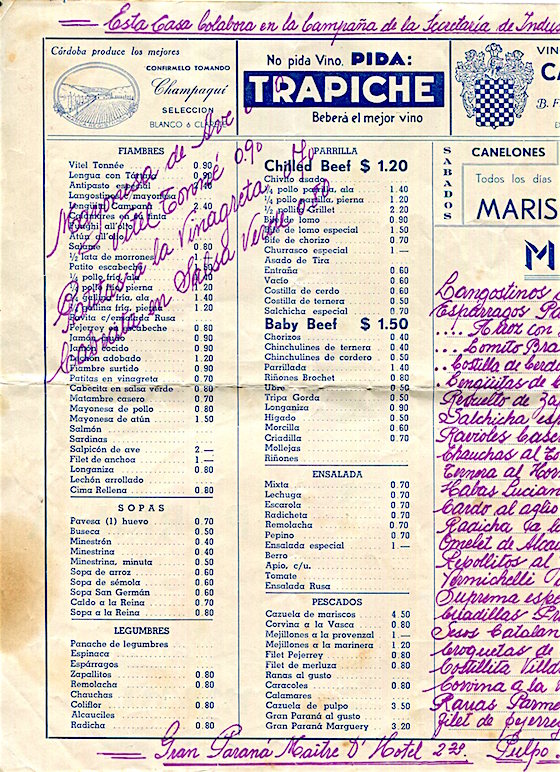 Esta Casa Colabora en la Campaña de la Secretaría de Indu
Córdoba produce los mejores
CONFIRMELO TOMANDO
Champaquí
SELECCION
BLANCO ó CLARETE
No pida Vino. PIDA:
TRAPICHE
Beberá el mejor vino
VIN
CA
B. F
SABADOS
CANELONES
Todos los días
MARIS
M
Mayonesa de Ave
Vitel Tonné 0.90
a la Vinagreta 0.70
Cabecita en Salsa Verde 0.80
FIAMBRES
Vitel Tonnée 0.90
Lengua con 0.90
Antipasto especial 1.40
Langostinos c/ mayonesa
Longaniza Campaña 2.40
Calamares en su tinta
Funghi all'olio
Atún all'olio
Salame 0.80
½ lata de morrones
Patito escabeche 0.50
½ pollo frío, ala
¼ pollo frío, pierna 1.20
¼ gallina fría, ala 1.40
¼ gallina fría, pierna 1.20
Pavita c/ensalada Rusa
Pejerrey en escabeche 0.80
Jamón crudo 0.90
Jamón cocido 0.90
Lechón adobado 1.20
Fiambre surtido 0.90
Patitas en vinagreta 0.70
Cabecita en salsa verde 0.80
Matambre casero 0.70
Mayonesa de pollo 0.80
Mayonesa de atún 1.50
Salmón
Sardinas
Salpicón de ave 2 —
Filet de anchoa 1.—
Longaniza 0.80
Lechón arrollado
Cima Rellena 0.80
SOPAS
Pavesa (1) huevo 0.70
Buseca 0.50
Minestrón 0.40
Minestrina 0.40
Minestrina, minuta 0.50
Sopa de arroz 0.60
Sopa de sémola 0.60
Sopa San Germán 0.60
Caldo a la Reina 0.70
Sopa a la Reina 0.80
LEGUMBRES
Panache de legumbres
Espinaca
Espárragos
Zapallitos 0.80
Remolacha 0.80
Chauchas
Coliflor 0.80
Alcauciles
Radicha 0.80
PARRILLA
Chilled Beef $ 1.20
Chivito asado
¼ pollo parrilla, ala 1.40
¼ pollo parrilla, pierna 1.20
½ pollo Grillet 2.20
Bife de lomo 0.90
Bife de lomo especial 1.50
Bife de chorizo 0.70
Churrasco especial 1 —
Asado de Tira
Entraña 0.60
Vacío 0.60
Costilla de cerdo 0.60
Costilla de ternera 0.50
Salchicha especial 0.70
Baby Beef $ 1.50
Chorizos 0.40
Chinchulines de ternera 0.40
Chinchulines de cordero 0.50
Parrillada 1.40
Riñones Brochet 0.80
Ubre 0.50
Tripa Gorda 0.50
Longaniza 0.90
Hígado 0.50
Morcilla 0.60
Criadilla 0.70
Mollejas
Riñones
ENSALADA
Mixta 0.70
Lechuga 0.70
Escarola 0.70
Radicheta 0.70
Remolacha 0.70
Pepino 0.70
Ensalada especial 1.—
Berro
Apio, c/u.
Tomate
Ensalada Rusa
PESCADOS
Cazuela de mariscos 4.50
Corvina a la Vasca 0.80
Mejillones a la provenzal 1 —
Mejillones a la marinera 1.20
Filet Pejerrey 0.80
Filet de merluza 0.80
Ranas al gusto
Caracoles 0.80
Calamares
Cazuela de pulpo 3.50
Gran Paraná al gusto
Gran Paraná Marguery 3.20
Langostinos
Espárragos Pa
.... Arros con
.... Lomito Bra
.. Costilla de Cerdo
Lenguitas de
Revuelto de Zap
Salchicha espe
Ravioles Case
Chauchas al To
Ternera al Horn
Habas Lucian
Cardo al aglio
Radicha La
Omelet de Alcau
Repollitos al
Vermichelli
Suprema espe
Criadillas Pr
Sesos Catalan
Croquetas de
Costillita Villa
Corvina a la
Ranas Parme
Filet de pejerre
Gran Parana Maitre D'Hotel 2.20. Pulpo